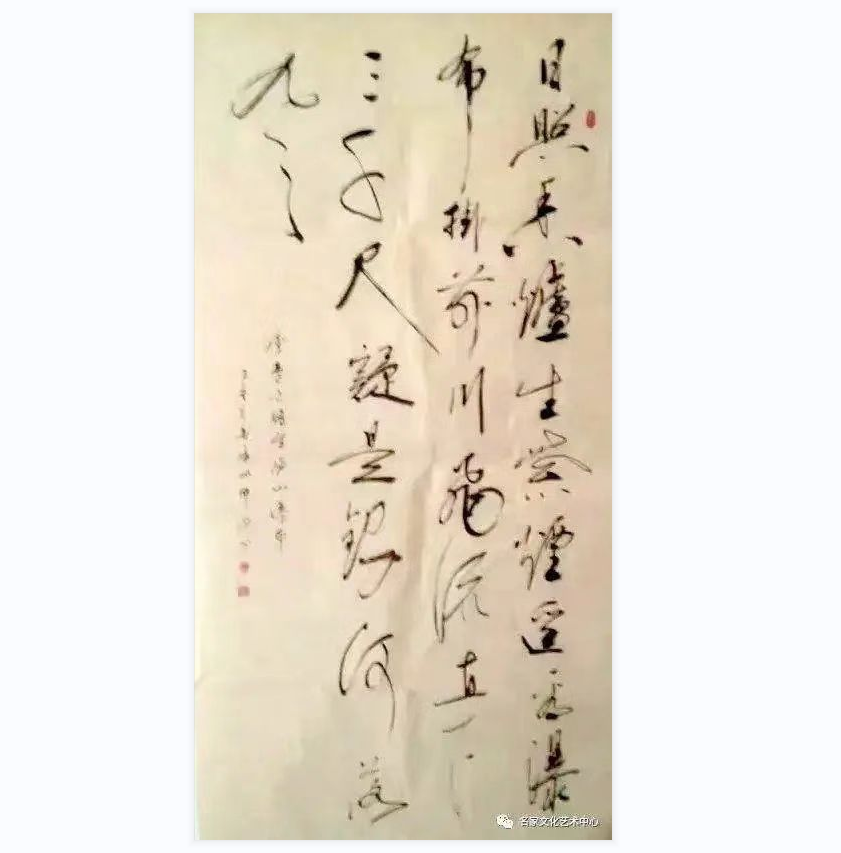 日照香爐生紫煙遥看瀑
布掛前川飛流直下
三千尺疑是銀河落
九天
李白詩望廬山瀑布
名家文化艺术中心